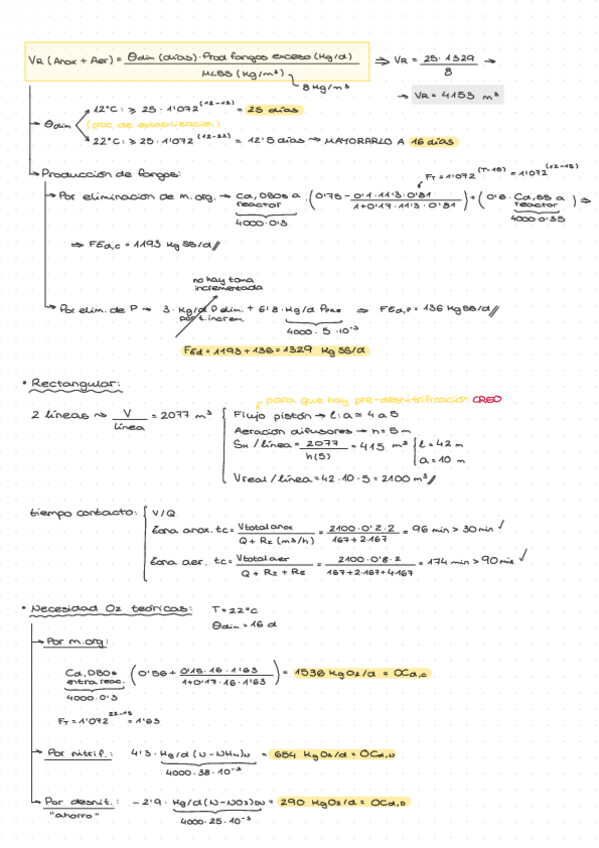 VR (Anox + Aer) = θdim (días) · Prod fangos exceso (Kg/d) / MLSS (Kg/m³) ⇒ VR = 25 · 1329 / 8 →
8 Kg/m³
→ VR = 4153 m³
θdim
12°C: ≥ 25 · 1'072^(12-12) = 25 días
(proc. de estabilización)
22°C: ≥ 25 · 1'072^(12-22) = 12'5 días ⇝ MAYORARLO A 16 días
Producción de fangos:
FT = 1'072^(T-15) = 1'072^(12-15)
Por eliminación de m.org. → Ca, DBO5 a reactor · (0'75 - 0'1·11'3·0'81 / 1+0'17·11'3·0'81) + (0'6 · Ca,SS a reactor) ⇒
4000·0'3
4000·0'35
⇒ FEd,c = 1193 Kg SS/d//
no hay toma incrementada
Por elim. de P → 3 · Kg/d P elim. por t.increm. + 6'8 · Kg/d Pprec ⇒ FEd,P = 136 Kg SS/d//
4000 · 5 · 10⁻³
FEd = 1193 + 136 = 1329 Kg SS/d
• Rectangular:
para que hay pre-desnitrificación CREO
2 líneas ⇝ V / Línea = 2077 m³
Flujo pistón → l:a ≈ 4 a 5
Aeración difusores → h = 5 m
SH / línea = 2077 / h(5) = 415 m²
l = 42 m
a = 10 m
Vreal / línea = 42 · 10 · 5 = 2100 m³//
tiempo contacto:
V/Q
Zona anox. tc = Vtotal anox / Q + RI (m³/h) = 2100 · 0'2 · 2 / 167 + 2·167 = 96 min > 30 min ✓
Zona aer. tc = Vtotal aer / Q + RI + RE = 2100 · 0'8 · 2 / 167 + 2·167 + 4·167 = 174 min > 90 min ✓
• Necesidad O2 teóricas: T = 22°C
θdim = 16 d
Por m.org:
Ca, DBO5 entra reac. (0'56 + 0'15 · 16 · 1'63 / 1 + 0'17 · 16 · 1'63) = 1536 Kg O2/d = OCd,c
4000 · 0'3
FT = 1'072^22-15 = 1'63
Por nitrif.: 4'3 · Kg/d (N-NH4)N = 654 Kg O2/d = OCd,N
4000 · 38 · 10⁻³
Por desnit.: -2'9 · Kg/d (N-NO3)DN = 290 Kg O2/d = OCd,D
"ahorro"
4000 · 25 · 10⁻³